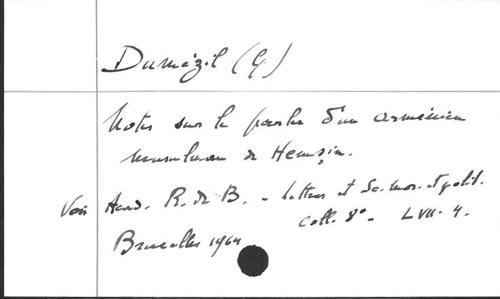 Dumézil (G)
Notes sur le parler d'un arménien
musulman de Hemşin.
Voir Acad. R. de B. - Lettres et Sc. mor. et polit.
Coll. 8° - LVII. 4.
Bruxelles 1964